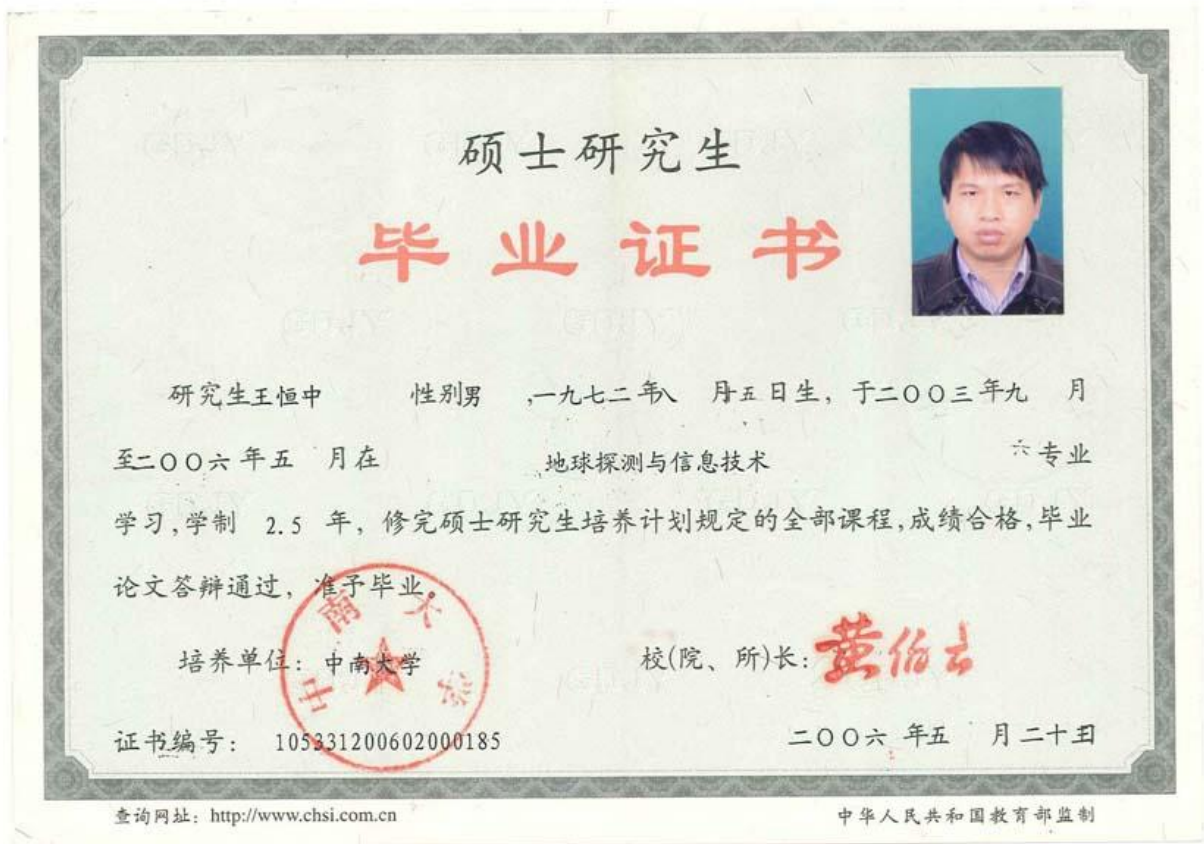 硕士研究生
毕业证书
研究生王恒中 性别男 ,一九七二年八 月五日生，于二〇〇三年九 月
至二〇〇六年五 月在 地球探测与信息技术 专业
学习,学制 2.5 年，修完硕士研究生培养计划规定的全部课程,成绩合格,毕业
论文答辩通过，准予毕业。
中南大学
培养单位：中南大学 校(院、所)长：黄伯云
证书编号： 105331200602000185 二〇〇六年五 月二十日
查询网址：http://www.chsi.com.cn 中华人民共和国教育部监制